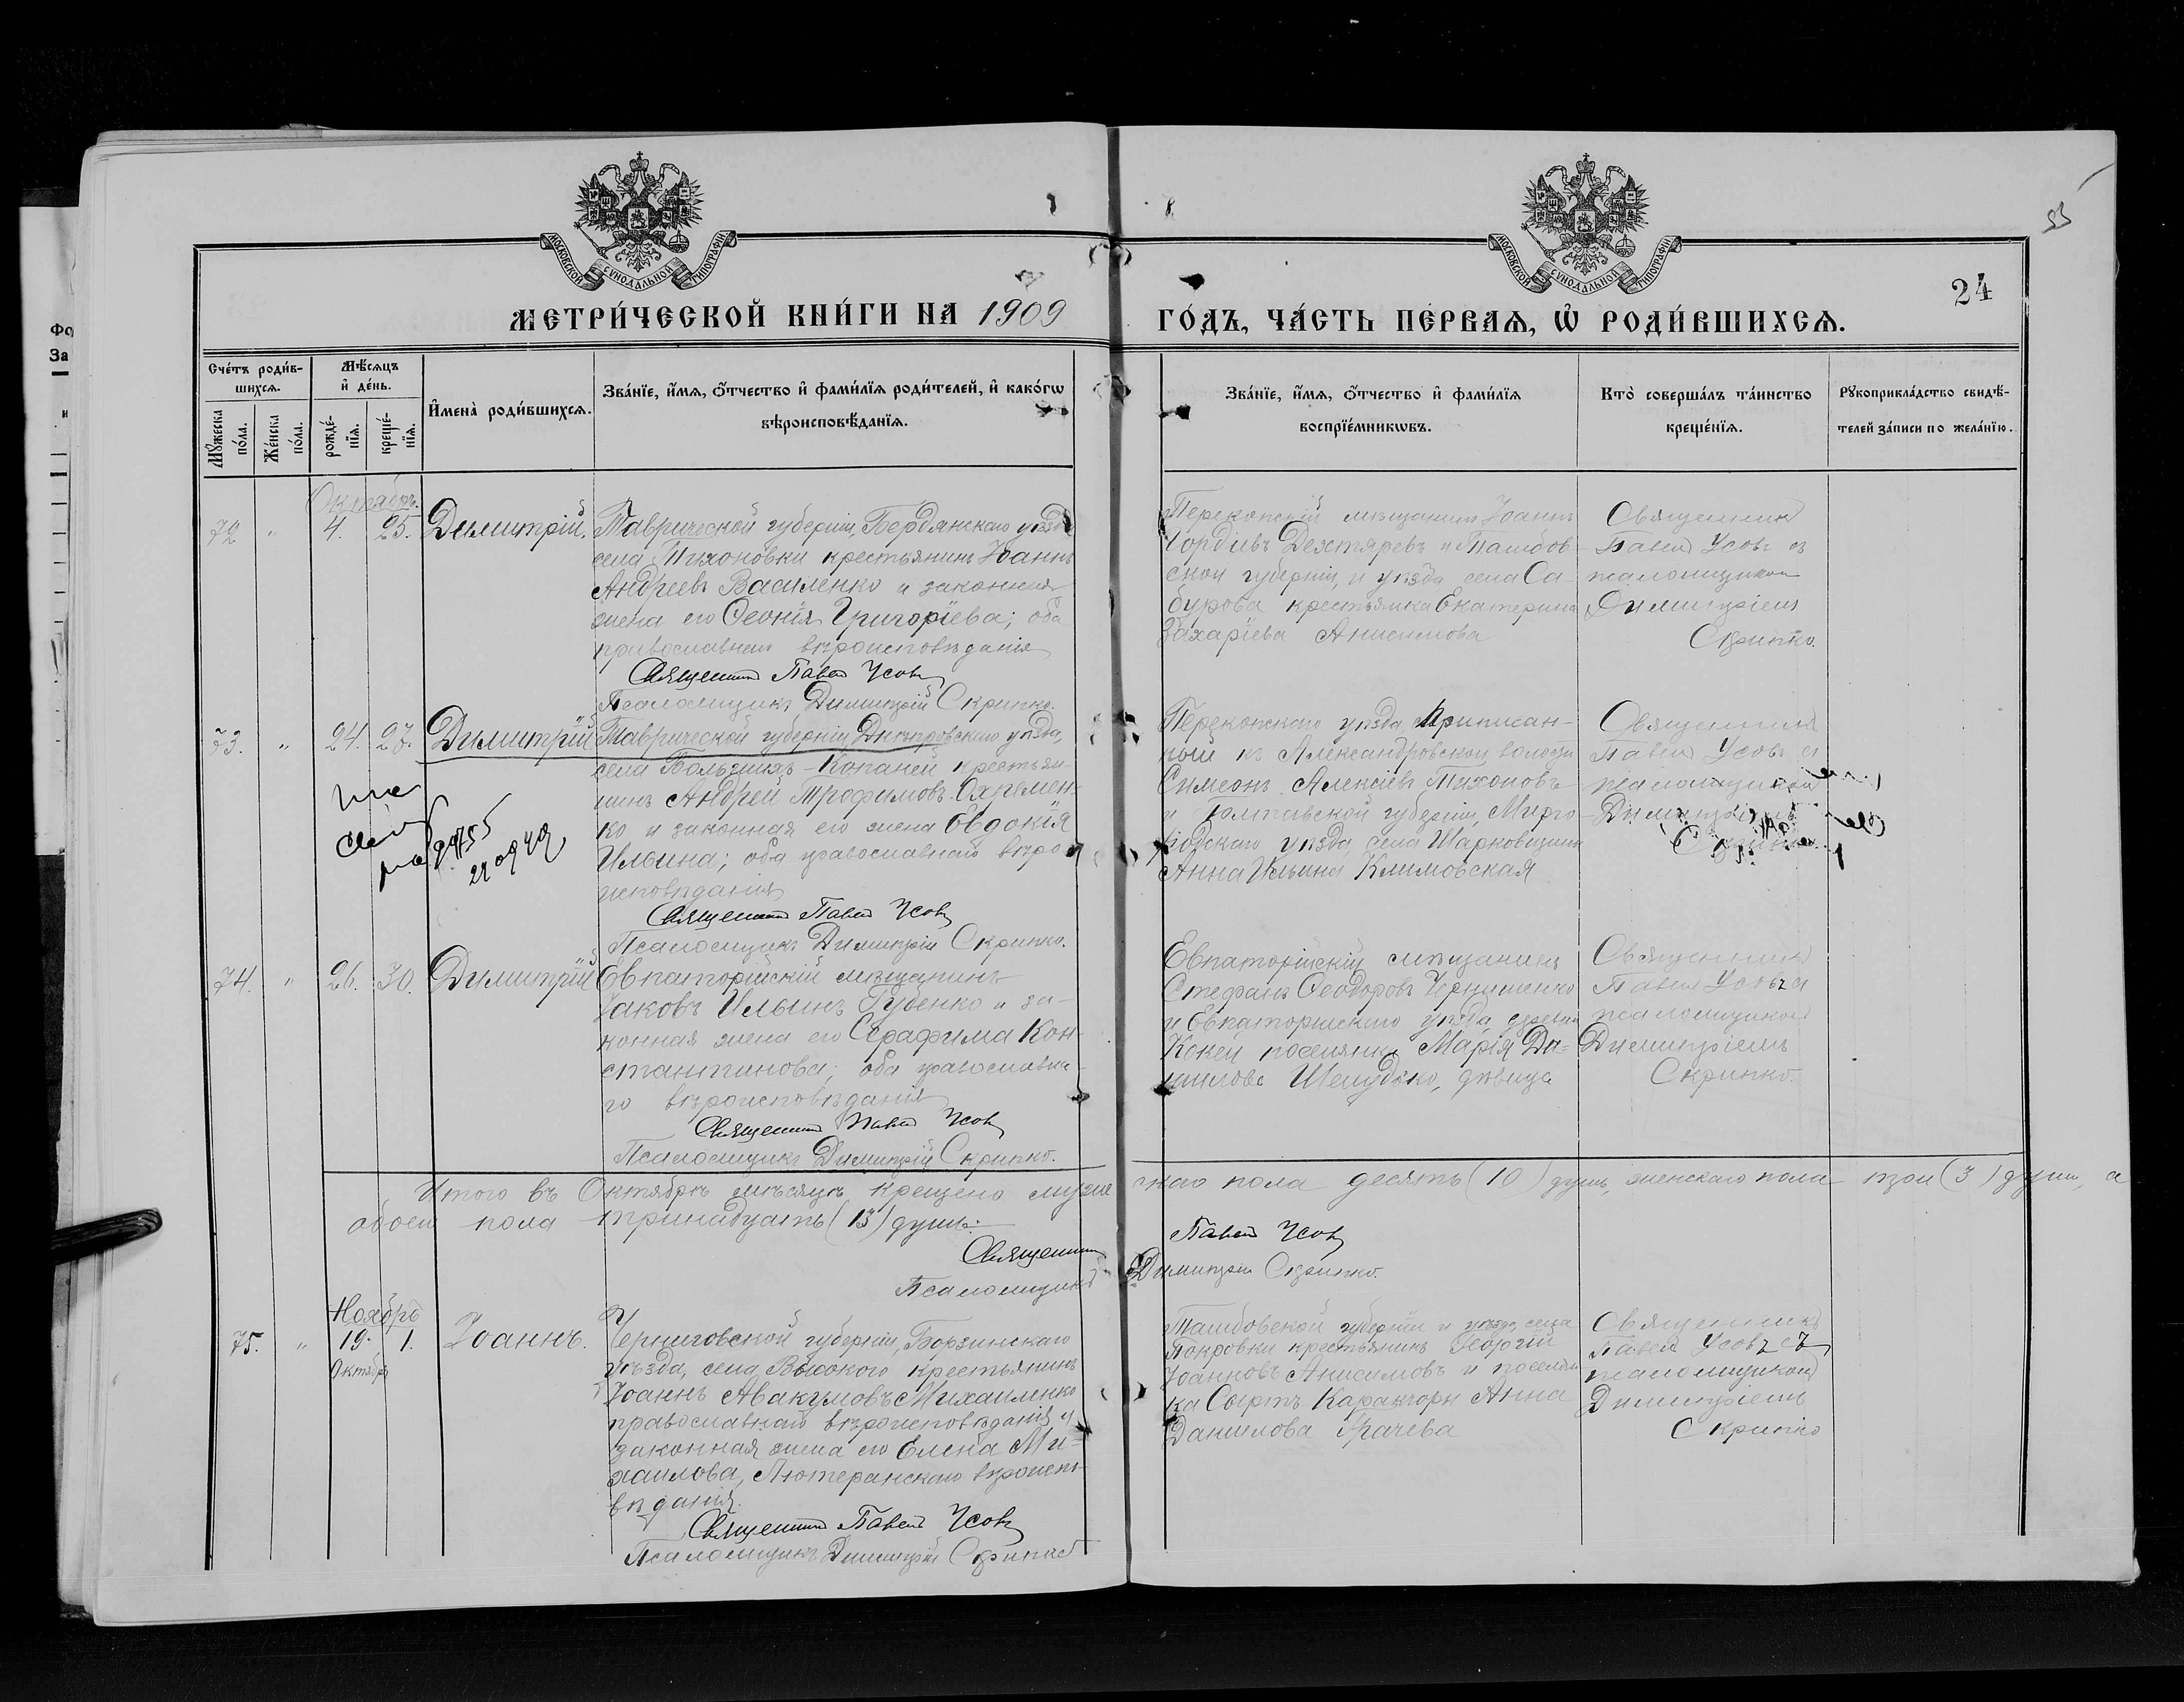 МОСКОВСКОЙ СУНОДАЛЬНОЙ ТИПОГРАФІИ
МОСКОВСКОЙ СУНОДАЛЬНОЙ ТИПОГРАФІИ
24
МЕТРИ́ЧЕСКОЙ КНИ́ГИ НА 1909
ГО́ДЪ, ЧА́СТЬ ПЕ́РВАѦ, Ѡ҆ РОДИ́ВШИХСѦ.
Сче́тъ роди́в-
шихсѧ.
Мꙋ́жеска
по́ла.
Же́нска
по́ла.
Мѣ́сѧцъ
и҆ де́нь.
рожде́-
нїѧ.
креще́-
нїѧ.
И҆мена̀ роди́вшихсѧ.
Зва́нїе, и҆́мѧ, ѻ҆́тчество и҆ фами́лїѧ роди́телей, и҆ како́гѡ
вѣроисповѣ́данїѧ.
Зва́нїе, и҆́мѧ, ѻ҆́тчество и҆ фами́лїѧ
воспрїе́мникѡвъ.
Кто̀ соверша́лъ та́инство
креще́нїѧ.
Рꙋкоприкла́дство свидѣ́-
телей за́писи по жела́нїю.
Октябрь.
72 " 4. 25. Димитрій.
Таврической губерніи, Бердянскаго уѣзда
села Тихоновки крестьянинъ Іоаннъ
Андреевъ Василенко и законная
жена его Ѳеонія Григоріева; оба
православнаго вѣроисповѣданія
Священникъ Павелъ Усовъ
Псаломщикъ Димитрій Скрипко.
Перекопскій мѣщанинъ Іоаннъ
Гордіевъ Дехтяревъ и Тамбов-
ской губерніи, и уѣзда села Са-
бурова крестьянка Екатерина
Захаріева Анисимова
Священникъ
Павелъ Усовъ съ
псаломщикомъ
Димитріемъ
Скрипко.
73. " 24. 27. Димитрій
Таврической губерніи Днѣпровскаго уѣзда,
села Большихъ-Копаней крестьян-
инъ Андрей Трофимовъ Охремен-
ко и законная его жена Евдокія
Ильина; оба православнаго вѣро-
исповѣданія
Священникъ Павелъ Усовъ
Псаломщикъ Димитрій Скрипко.
Перекопскаго уѣзда приписан-
ный къ Александровской волости
Симеонъ Алексіевъ Тихоновъ
и Полтавской губерніи, Мирго-
родскаго уѣзда, села Шарковщины
Анна Ильина Климовская
Священникъ
Павелъ Усовъ съ
псаломщикомъ
Димитріемъ
74. " 26. 30. Димитрій
Евпаторійскій мѣщанинъ
Іаковъ Ильинъ Губенко и за-
конная жена его Серафима Кон-
стантинова; оба православна-
го вѣроисповѣданія
Священникъ Павелъ Усовъ
Псаломщикъ Димитрій Скрипко.
Евпаторійскій мѣщанинъ
Стефанъ Ѳеодоровъ
и Евпаторійскаго уѣзда, деревни
Кокей поселянка Марія Да-
ниилова Шелудько, дѣвица
Священникъ
Павелъ Усовъ съ
псаломщикомъ
Димитріемъ
Скрипко.
Итого въ Октябрѣ мѣсяцѣ крещено муже
скаго пола десять (10) душъ, женскаго пола три (3) души, а
обоего пола тринадцать (13) душъ.
Священникъ Павелъ Усовъ
Псаломщикъ Димитрій Скрипко.
Ноябрь
75. " 19. 1. Іоаннъ.
Октября
Черниговской губерніи, Борзинскаго
уѣзда, села Высокого крестьянинъ
Іоаннъ Авакумовъ Михаиленко
православнаго вѣроисповѣданія и
законная жена его Елена Ми-
хаилова, Лютеранскаго вѣроиспо-
вѣданія.
Священникъ Павелъ Усовъ
Псаломщикъ Димитрій Скрипко
Тамбовской губерніи и уѣзда, села
Покровки крестьянинъ Георгій
Іоанновъ Анисимовъ и поселян
ка Сыртъ Каракчора Анна
Даниилова Грачева
Священникъ
Павелъ Усовъ съ
псаломщикомъ
Димитріемъ
Скрипко